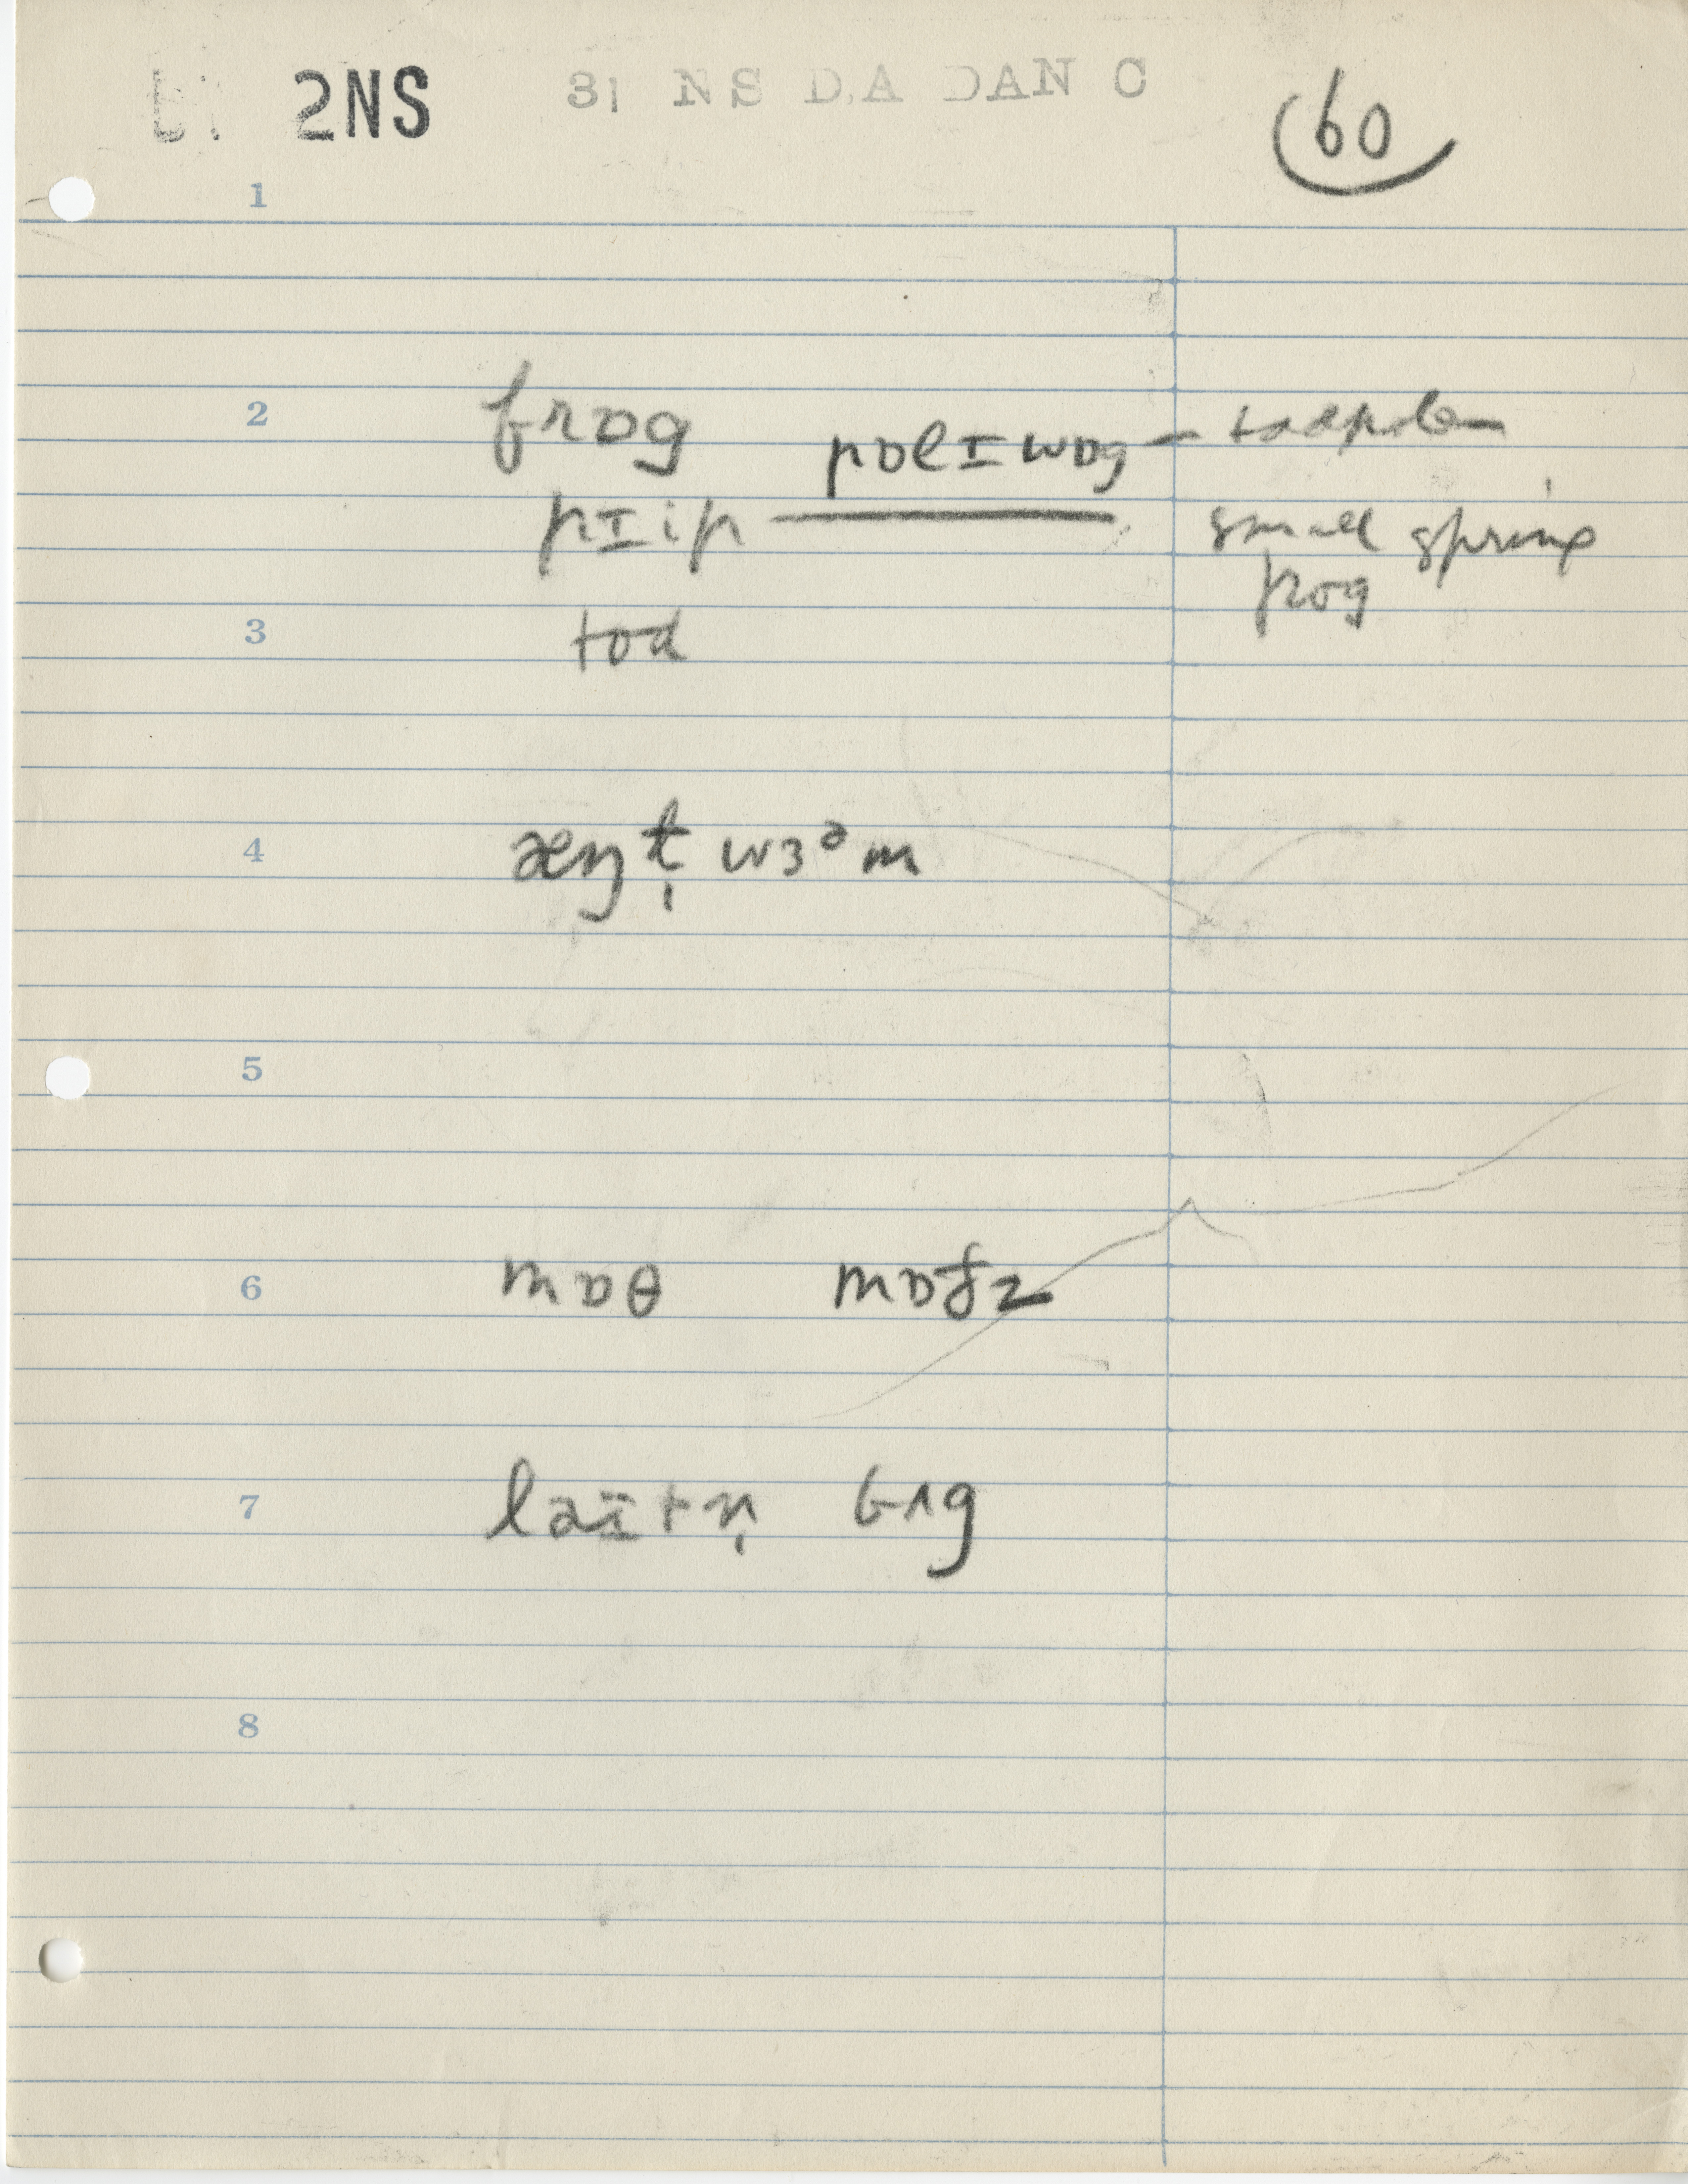 2NS 31 NS D.A DAN C 60
1
2 frɒg pɒlɪwɒg — tadpole
pɪip — small spring frog
3 tod
4 æŋɫ̩ wɜᵊm
5
6 mɒθ mɒðz
7 laɪtn̩ bʌg
8